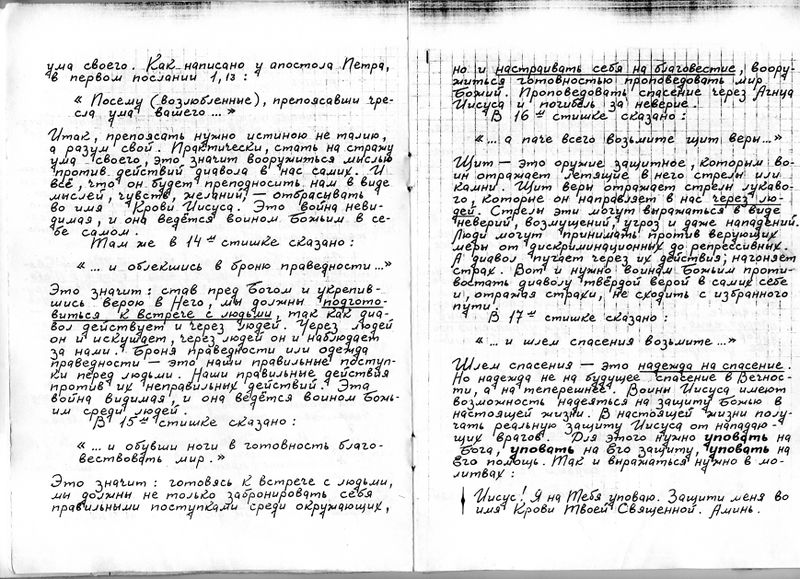 ума своего. Как написано у апостола Петра,
в первом послании 1,13 :
« Посему (возлюбленные), препоясавши чре-
сла ума вашего ... »
Итак, препоясать нужно истиною не талию,
а разум свой. Практически, стать на стражу
ума своего, это значит вооружиться мыслью
против действий диавола в нас самих. И
всё, что он будет преподносить нам в виде
мыслей, чувств, желаний, — отбрасывать
во имя Крови Иисуса. Это война неви-
димая, и она ведётся воином Божьим в се-
бе самом.
Там же в 14 ом стишке сказано :
« ... и облекшись в броню праведности ... »
Это значит : став пред Богом и укрепив-
шись верою в Него, мы должны подгото-
виться к встрече с людьми, так как диа-
вол действует и через людей. Через людей
он и искушает, через людей он и наблюдает
за нами. Броня праведности или одежда
праведности — это наши правильные поступ-
ки перед людьми. Наши правильные действия
против их неправильных действий. Эта
война видимая, и она ведётся воином Божь-
им среди людей.
В 15 ом стишке сказано :
« ... и обувши ноги в готовность благо-
вествовать мир. »
Это значит : готовясь к встрече с людьми,
мы должны не только забронировать себя
правильными поступками среди окружающих,
но и настраивать себя на благовестие, воору-
житься готовностью проповедовать мир
Божий. Проповедовать спасение через Агнца
Иисуса и погибель за неверие.
В 16 ом стишке сказано :
« ... а паче всего возьмите щит веры ... »
Щит — это оружие защитное, которым во-
ин отражает летящие в него стрелы или
камни. Щит веры отражает стрелы лукаво-
го, которые он направляет в нас через лю-
дей. Стрелы эти могут выражаться в виде
неверий, возмущений, угроз и даже нападений.
Люди могут принимать против верующих
меры от дискриминационных до репрессивных.
А диавол пугает через их действия; нагоняет
страх. Вот и нужно воинам Божьим проти-
востать диаволу твёрдой верой в самих себе
и, отражая страхи, не сходить с избранного
пути.
В 17 ом стишке сказано :
« ... и шлем спасения возьмите ... »
Шлем спасения — это надежда на спасение.
Но надежда не на будущее спасение в Вечнос-
ти, а на теперешнее. Воины Иисуса имеют
возможность надеяться на защиту Божью в
настоящей жизни. В настоящей жизни полу-
чать реальную защиту Иисуса от нападаю-
щих врагов. Для этого нужно уповать на
Бога, уповать на Его защиту, уповать на
Его помощь. Так и выражаться нужно в мо-
литвах :
Иисус! Я на Тебя уповаю. Защити меня во
имя Крови Твоей Священной. Аминь.